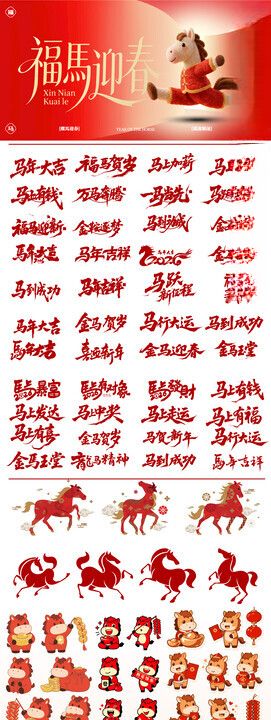 福馬迎春
Xin Nian
Kuai le
YEAR OF THE HORSE
马年大吉 福马贺岁 马上加薪
马上有钱 万马奔腾 一马当先
福马迎新 金鞍逐梦 马到功成
马年大吉 马年吉祥 2026
马到成功 马年吉祥 马跃新征程
马年大吉 金马贺岁 马行大运 马到成功
马年大吉 喜迎新年 金马迎春 金马玉堂
馬上暴富 馬上有对象 馬上發財 马上有钱
马上发达 马上中奖 马上走运 马上有福
马上有喜 金马贺岁 马贺新年 马行大运
金马玉堂 龙马精神 马到成功 馬年吉祥